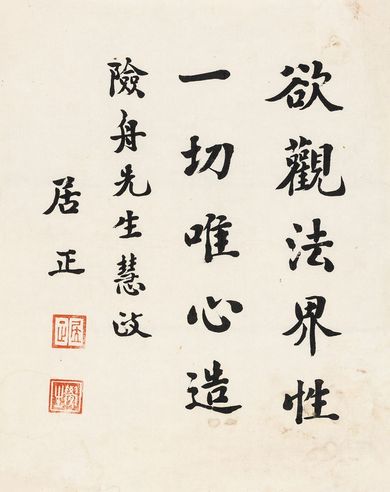 欲觀法界性
一切唯心造
險舟先生慧政
居正